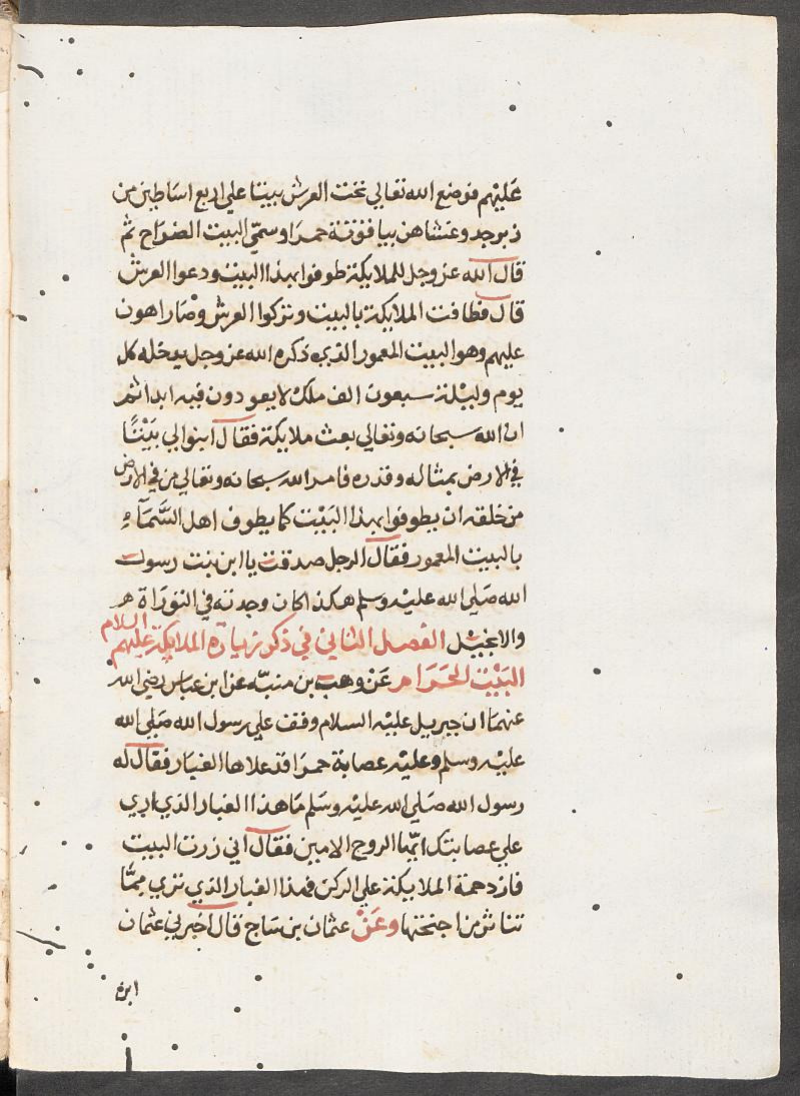 عَليْهم فوضع الله تعالي تحت العرش بيتا علي اربع اساطين من
زبرجد وغشاهن بياقوتة حمرا وسمي البيت الضراح ثم
قال الله عز وجل للملايكة طوفوا بهذا البيت ودعوا العرش
قال فطافت الملايكة بالبيت وتركوا العرش وصار اهون
عليهم وهو البيت المعمور الذي ذكره الله عز وجل يدخله كل
يوم وليلة سبعون الف ملك لا يعودون فيه ابدا ثم
ان الله سبحانه وتعالي بعث ملايكة فقال ابنوا لي بَيْتًا
في الارض بمثاله وقدره فامر الله سبحانه وتعالي من في الارض
من خلقه ان يطوفوا بهذا البَيْت كما يطوف اهل السَّمآء
بالبيت المعمور فقال الرجل صدقت يا ابن بنت رسول
الله صَلي الله عليه وسلم هكذا كان وجدته في التورَاة
والانجيل الفصل الثاني في ذكر زيارة الملايكة عليهم السلام
البَيْت الحَرَام عَنْ وهب بن منبّه عن ابن عباس رضي الله
عنهما ان جبريل عليه السلام وقف علي رسول الله صَلي الله
عليه وسلم وعليه عصابة حمرا قد علاها الغبار فقال له
رسول الله صَلي الله عليه وسَلم مَا هذا الغبار الذي اري
علي عصابتك ايّها الروح الامين فقال اني زرت البيت
فازدحمة الملايكة علي الركن فهذا الغبار الذي تري ممَّا
تناثر من اجنحتها وعَنْ عثمان بن سَاج قال اخبرني عثمان
ابن